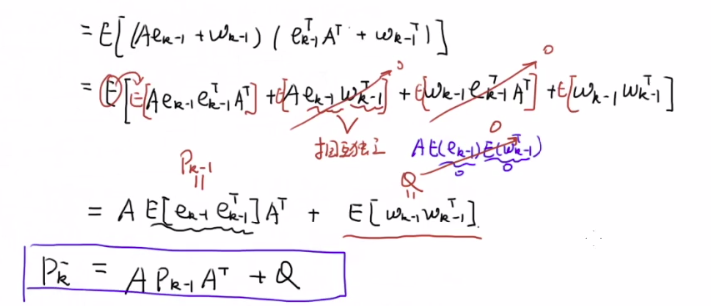 = E[(Ae_{k-1} + w_{k-1}) (e_{k-1}^T A^T + w_{k-1}^T)]
= E[E[Ae_{k-1}e_{k-1}^T A^T] + E[Ae_{k-1}w_{k-1}^T] + E[w_{k-1}e_{k-1}^T A^T] + E[w_{k-1}w_{k-1}^T]]
0 0
相互独立 A E(e_{k-1}) E(w_{k-1}^T)
0 0 0
P_{k-1} Q
= A E[e_{k-1} e_{k-1}^T] A^T + E[w_{k-1}w_{k-1}^T].
P_k^- = A P_{k-1} A^T + Q